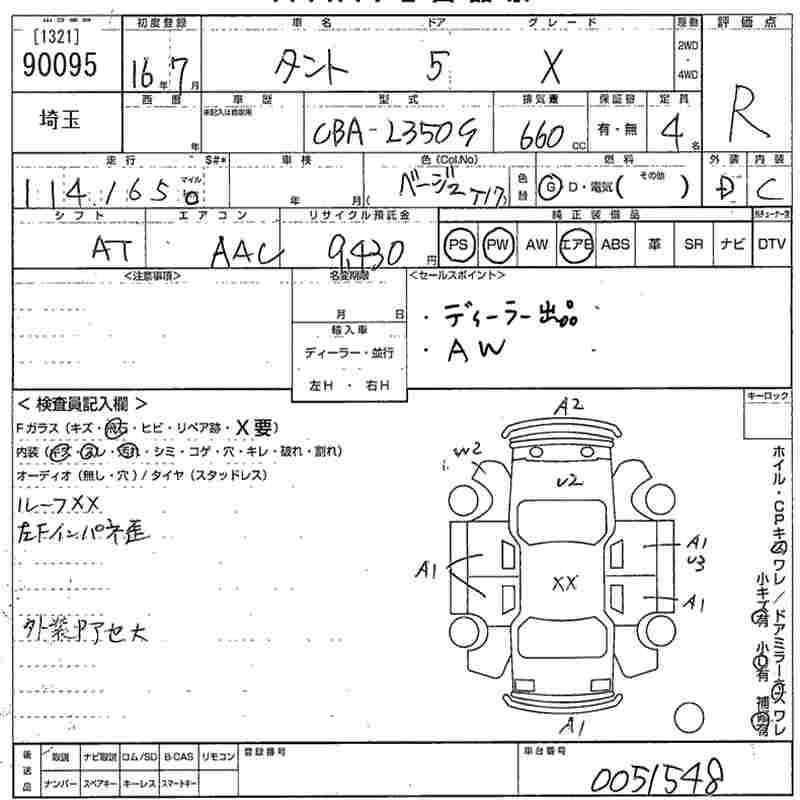 [1321]
90095
初度登録
16年 7月
車名 ドア グレード
タント 5 X
駆動
2WD
・
4WD
評価点
R
埼玉
西暦
年
車歴
未記入は自家用
型式
CBA-L350S
排気量
660 CC
保証書
有・無
定員
4名
走行 S#*
114,165 マイル
車検
年 月(
色(Col.No)
ベージュ T17)
色替
燃料
G D・電気( その他 )
外装
D
内装
C
シフト
AT
エアコン
AAC
リサイクル預託金
9,430円
純正装備品
PS PW AW エアB ABS 革 SR ナビ DTV
<注意事項>
名変期限
月 日
輸入車
ディーラー・並行
左H・右H
<セールスポイント>
・ディーラー出品
・AW
<検査員記入欄>
Fガラス(キズ・飛石・ヒビ・リペア跡・X要)
内装(キズ・スレ・汚れ・シミ・コゲ・穴・キレ・破れ・割れ)
オーディオ(無し・穴)/タイヤ(スタッドレス)
ルーフXX
左Fインパネ歪
外装Pアセ大
A2
W2
U2
A1
A1
U3
XX
A1
A1
キーロック
ホイル・CPキズワレ/ドアミラーキズワレ
小キズ有 小凹有 補修有
後送品
取説 ナビ取説 ロム/SD B-CAS リモコン
ナンバー スペアキー キーレス スマートキー
登録番号
車台番号
0051548